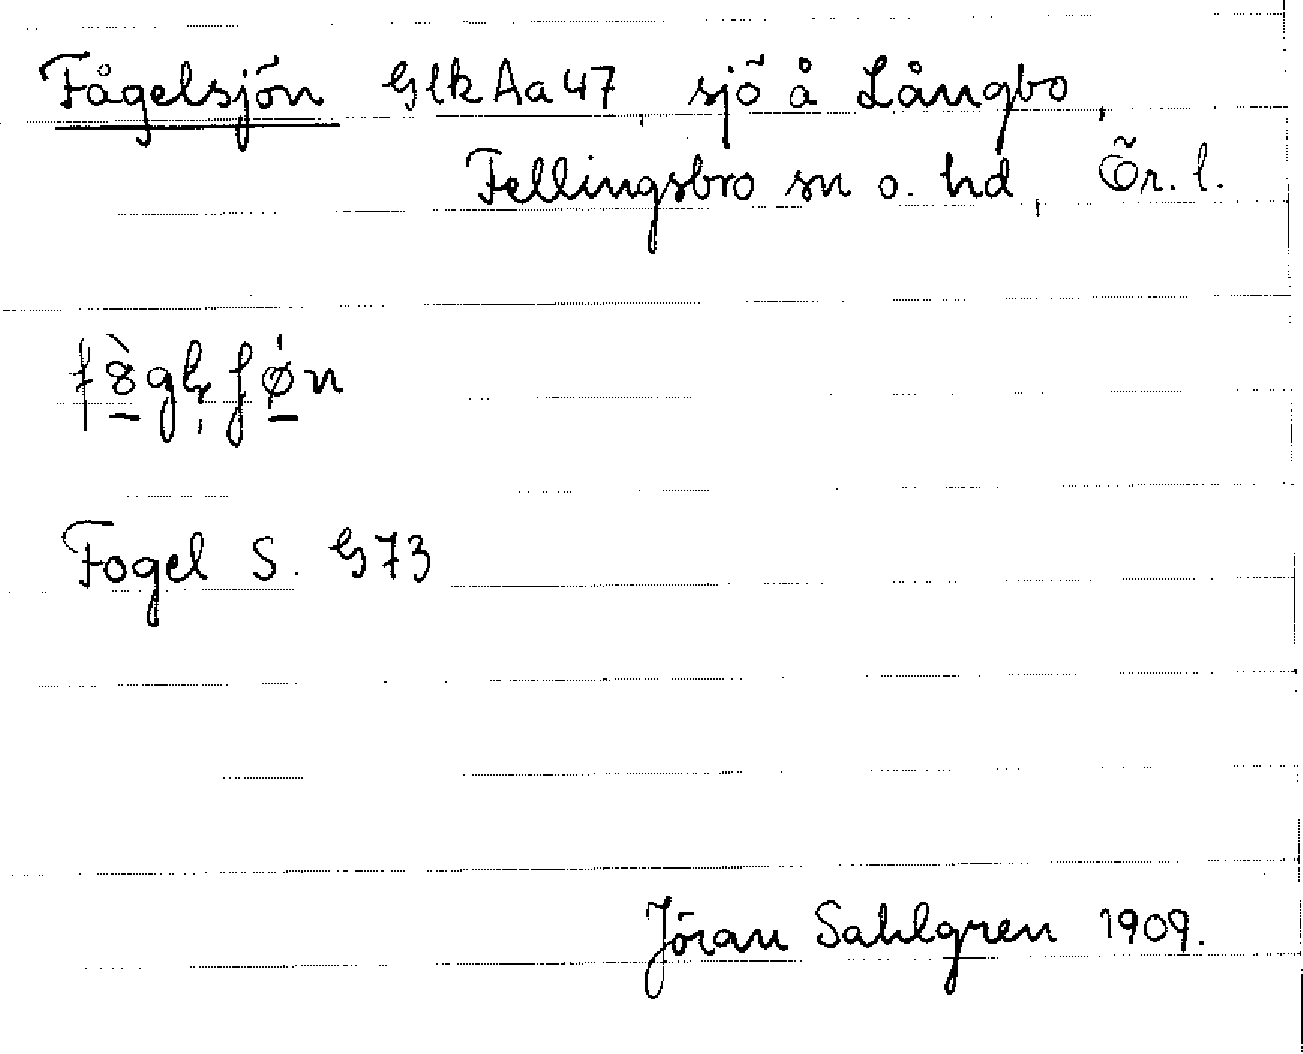 Fågelsjön GlkAa47, sjö å Långbo,
Fellingsbro sn o. hd, Ör. l.
Fogel S. G73
Jöran Sahlgren 1909.